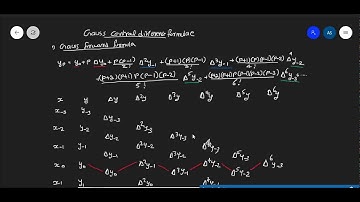 Gauss Central difference formulae
1) Gauss Forward formula
yp = y0 + p Δy0 + p(p-1)/2! Δ²y-1 + (p+1)p(p-1)/3! Δ³y-1 + (p+1)p(p-1)(p-2)/4! Δ⁴y-2
+ (p+2)(p+1)p(p-1)(p-2)/5! Δ⁵y-2 + (p+2)(p+1)p(p-1)(p-2)(p-3)/6! Δ⁶y-3
x y Δy Δ²y Δ³y Δ⁴y Δ⁵y Δ⁶y
x-3 y-3
Δy-3
x-2 y-2 Δ²y-3
Δy-2 Δ³y-3
x-1 y-1 Δ²y-2 Δ⁴y-3
Δy-1 Δ³y-2 Δ⁵y-3
x0 y0 Δ²y-1 Δ⁴y-2 Δ⁶y-3
Δy0 Δ³y-1 Δ⁵y-2
x1 y1 Δ²y0 Δ⁴y-1
AS